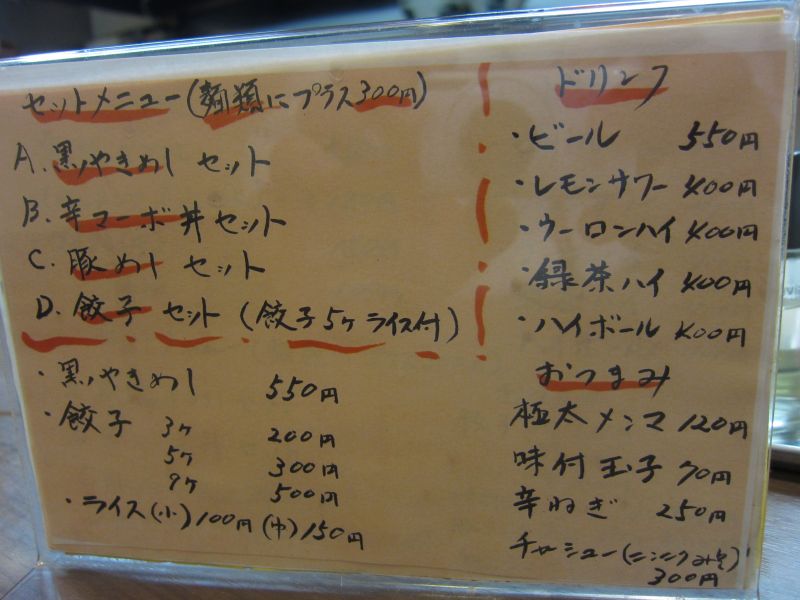 セットメニュー(麺類にプラス300円)
A. 黒やきめし セット
B. 辛マーボ丼セット
C. 豚めし セット
D. 餃子 セット (餃子5ヶ ライス付)
・黒やきめし 550円
・餃子 3ヶ 200円
5ヶ 300円
9ヶ 500円
・ライス(小)100円(中)150円
ドリンク
・ビール 550円
・レモンサワー 400円
・ウーロンハイ 400円
・緑茶ハイ 400円
・ハイボール 400円
おつまみ
極太メンマ 120円
味付玉子 70円
辛ねぎ 250円
チャーシュー(ニンニクみそ)
300円